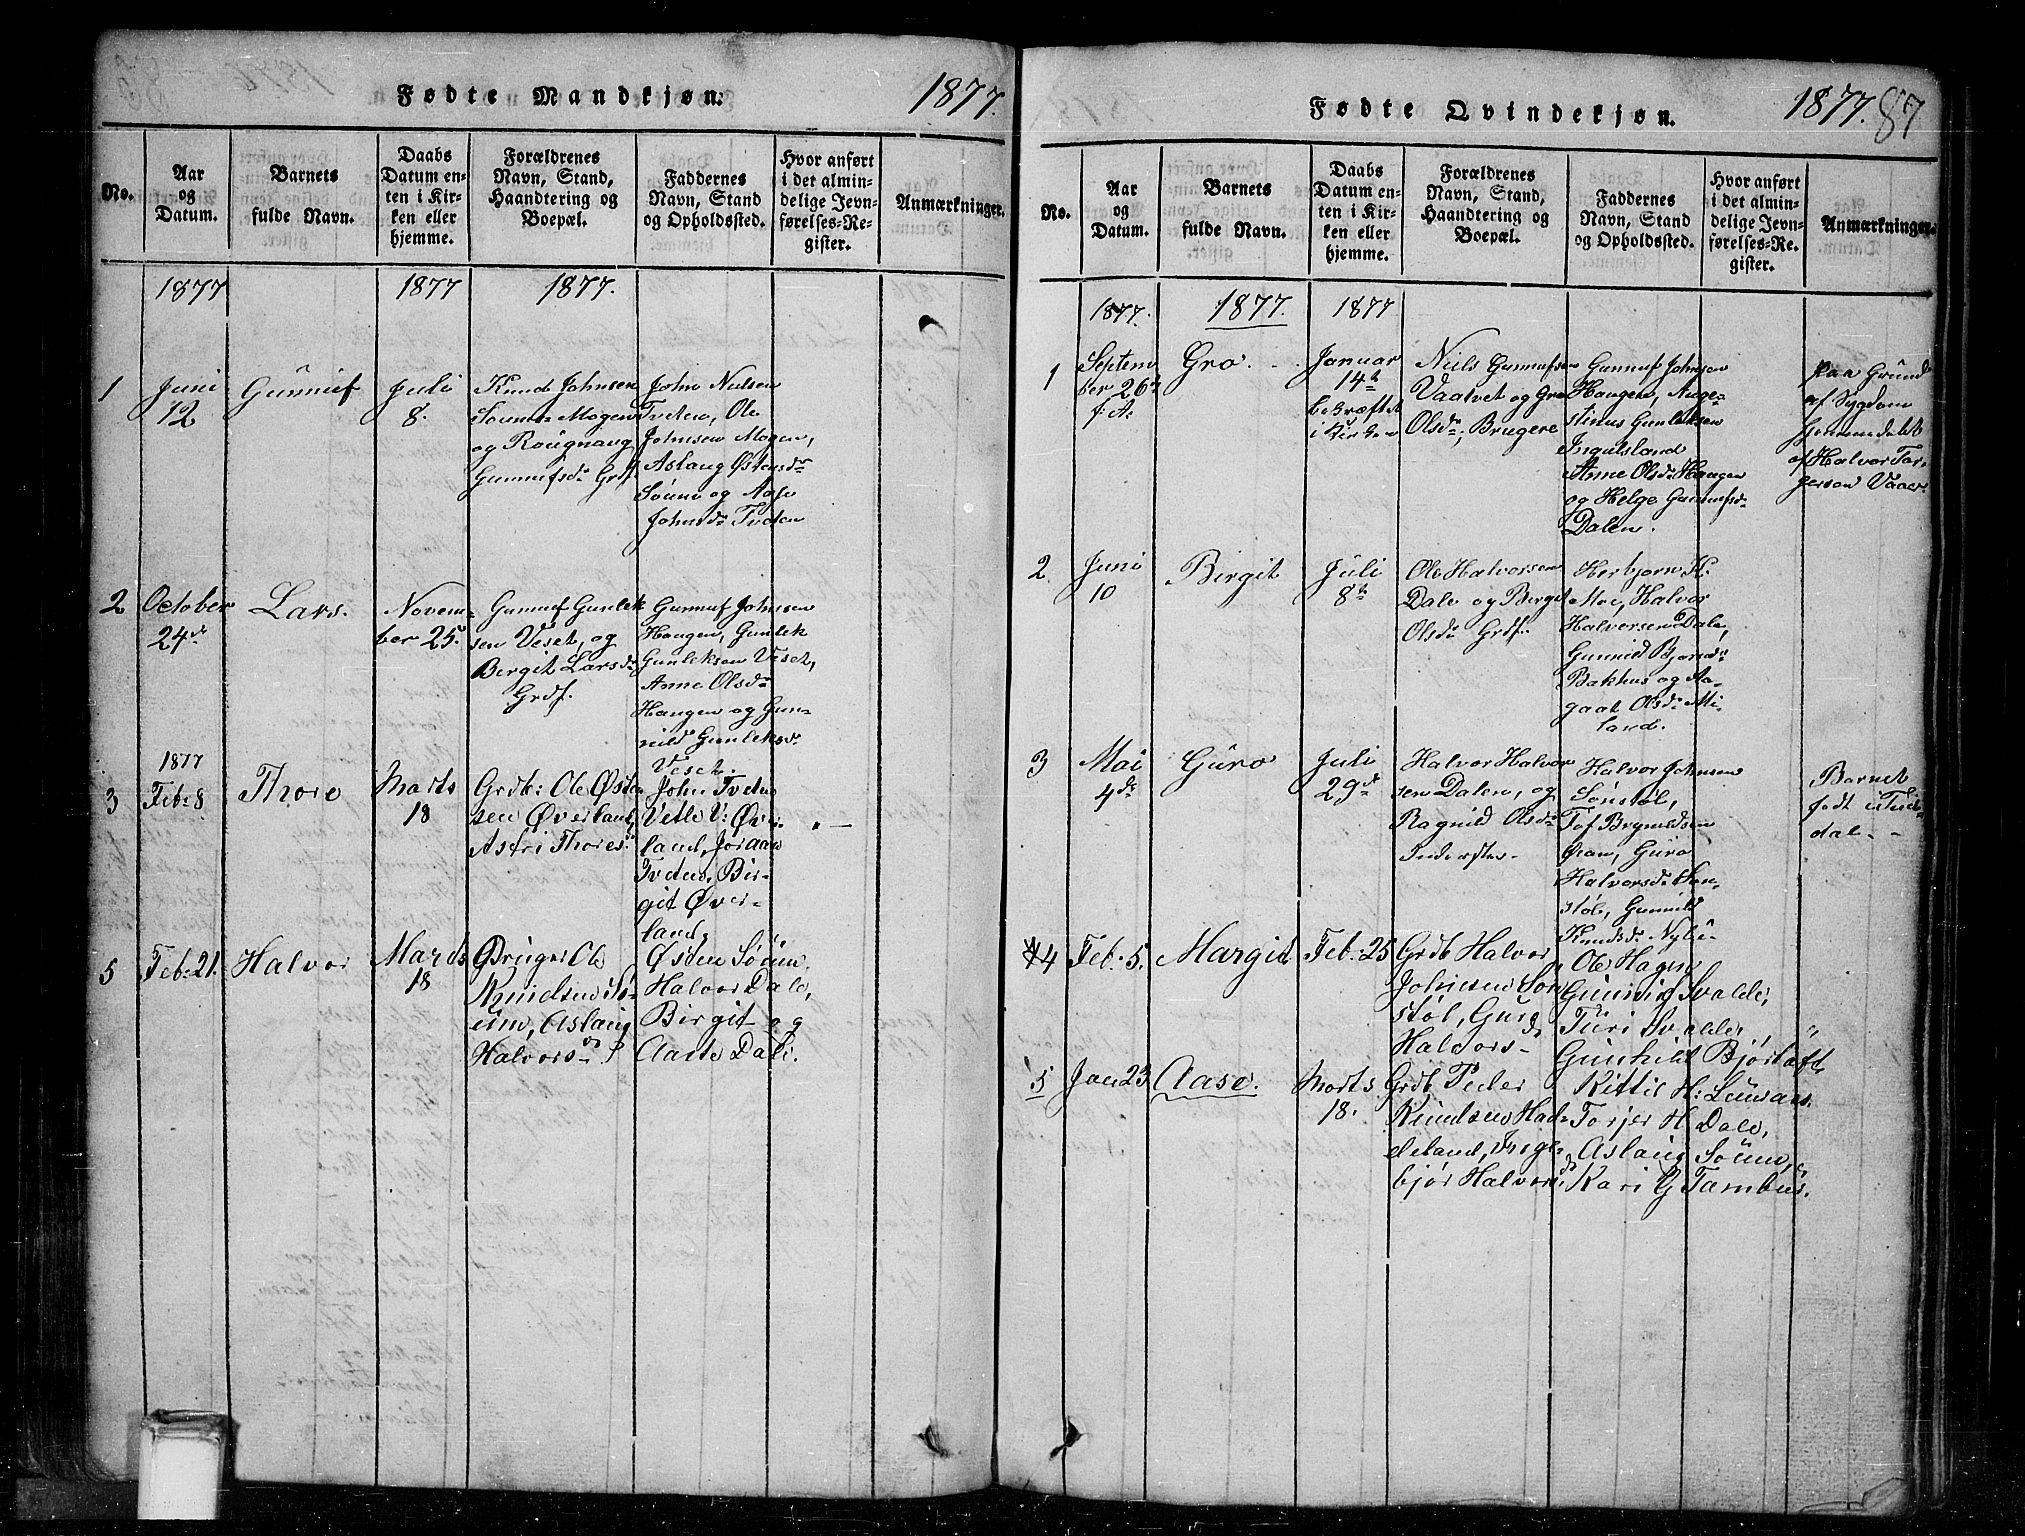 Fødte Mandkjøn. 1877.
No.
Aar
og
Datum.
Barnets
fulde Navn.
Daabs
Datum en-
ten i Kir-
ken eller
hjemme.
Forældrenes
Navn, Stand,
Haandtering og
Boepæl.
Faddernes
Navn, Stand
og Opholdssted.
Hvor anført
i det almin-
delige Jevn-
førelses-Re-
gister.
Anmærkninger.
1877 1877 1877.
1
Juni
12
Gunnuf
Juli
8.
Knud Johnsen
Mogen
og Rougnaug
Gunnufsd. Grdf.
John Nielsen
Tveten, Ole
Johnsen Mogen,
Aslaug Østensdr
Søum og Aase
Johnsdr Tveten
2
October
24de
Lars.
Novem-
ber 25.
Gunnuf Gunlek
sen Veset, og
Bergit Larsdr
Grdf.
Gunnuf Johnsen
Haugen, Gunlek
Gunleksen Veset,
Anne Olsdr
Haugen og Gun-
nild Gunleksdr
Veset.
1877
3
Feb: 8
Thore
Marts
18
Grdb: Ole Østen
sen Øverland,
Astri Thores:
John Tveten
Vetle V: Øver-
land, Joraan
Tveten, Bir-
git Øver-
land,
5
Feb: 21.
Halvor
Marts
18
Bruger Ole
Knudsen Sø-
um, Aslaug
Halvorsd.
Østen Søum,
Halvor Dale,
Birgit og
Aaste Dale.
Fødte Qvindekjøn. 1877. 87
No.
Aar
og
Datum.
Barnets
fulde Navn.
Daabs
Datum en-
ten i Kir-
ken eller
hjemme.
Forældrenes
Navn, Stand,
Haandtering og
Boepæl.
Faddernes
Navn, Stand
og Opholdssted.
Hvor anført
i det almin-
delige Jevn-
førelses-Re-
gister.
Anmærkninger.
1877. 1877. 1877
1
Septem
ber 26de
f. A.
Gro.
Januar
14de
bekræftet
i Kirken
Niels Gunnufsen
Vaalvet og Gro
Olsdr, Brugere
Gunnuf Johnsen
Haugen, Auge-
stinus Gunleksen
Ingulsland
Anne Olsdr Haugen
og Helge Gunnufsdr
Dalen.
paa Grund
af Sygdom
hjemmedøbt
af Halvor Tor-
gersen Vaaer.
2
Juni
10
Birgit
Juli
8de
Ole Halvorsen
Dale og Bergit
Olsdr Grdf.
Herbjørn K.
Moe, Halvor
Halvorsen Dale,
Gunnild Bjørnsdr
Bakhus og Aa-
gaat Olsdr Mi-
land.
3
Mai
4de
Guro
Juli
29de
Halvor Halvor
sen Dalen, og
Ragnild Olsdr
Inderster.
Halvor Johnsen
Sønstøl,
Tof Brynildsen
Øran, Guro
Halvorsdr Søn-
støl, Gunnild
Knudsdr Nybu-
Barnet
født i Tues-
dal.
4
Feb. 5.
Margit
Feb. 25
Grdb Halvor
Johnsen Søn
støl, Guro
Halvorsd.
Ole Hagen,
Gunnuf Svalde,
Turi Svalde,
Gunhild Bjørtuft
5
Jan 23
Aase.
Marts
18.
Grdb Peder
Knudsen Had-
deland, Inge-
bjør Halvorsd.
Kittil H: Leuraas.
Torjer H Dale,
Aslaug Søum,
Kari G Tambur.